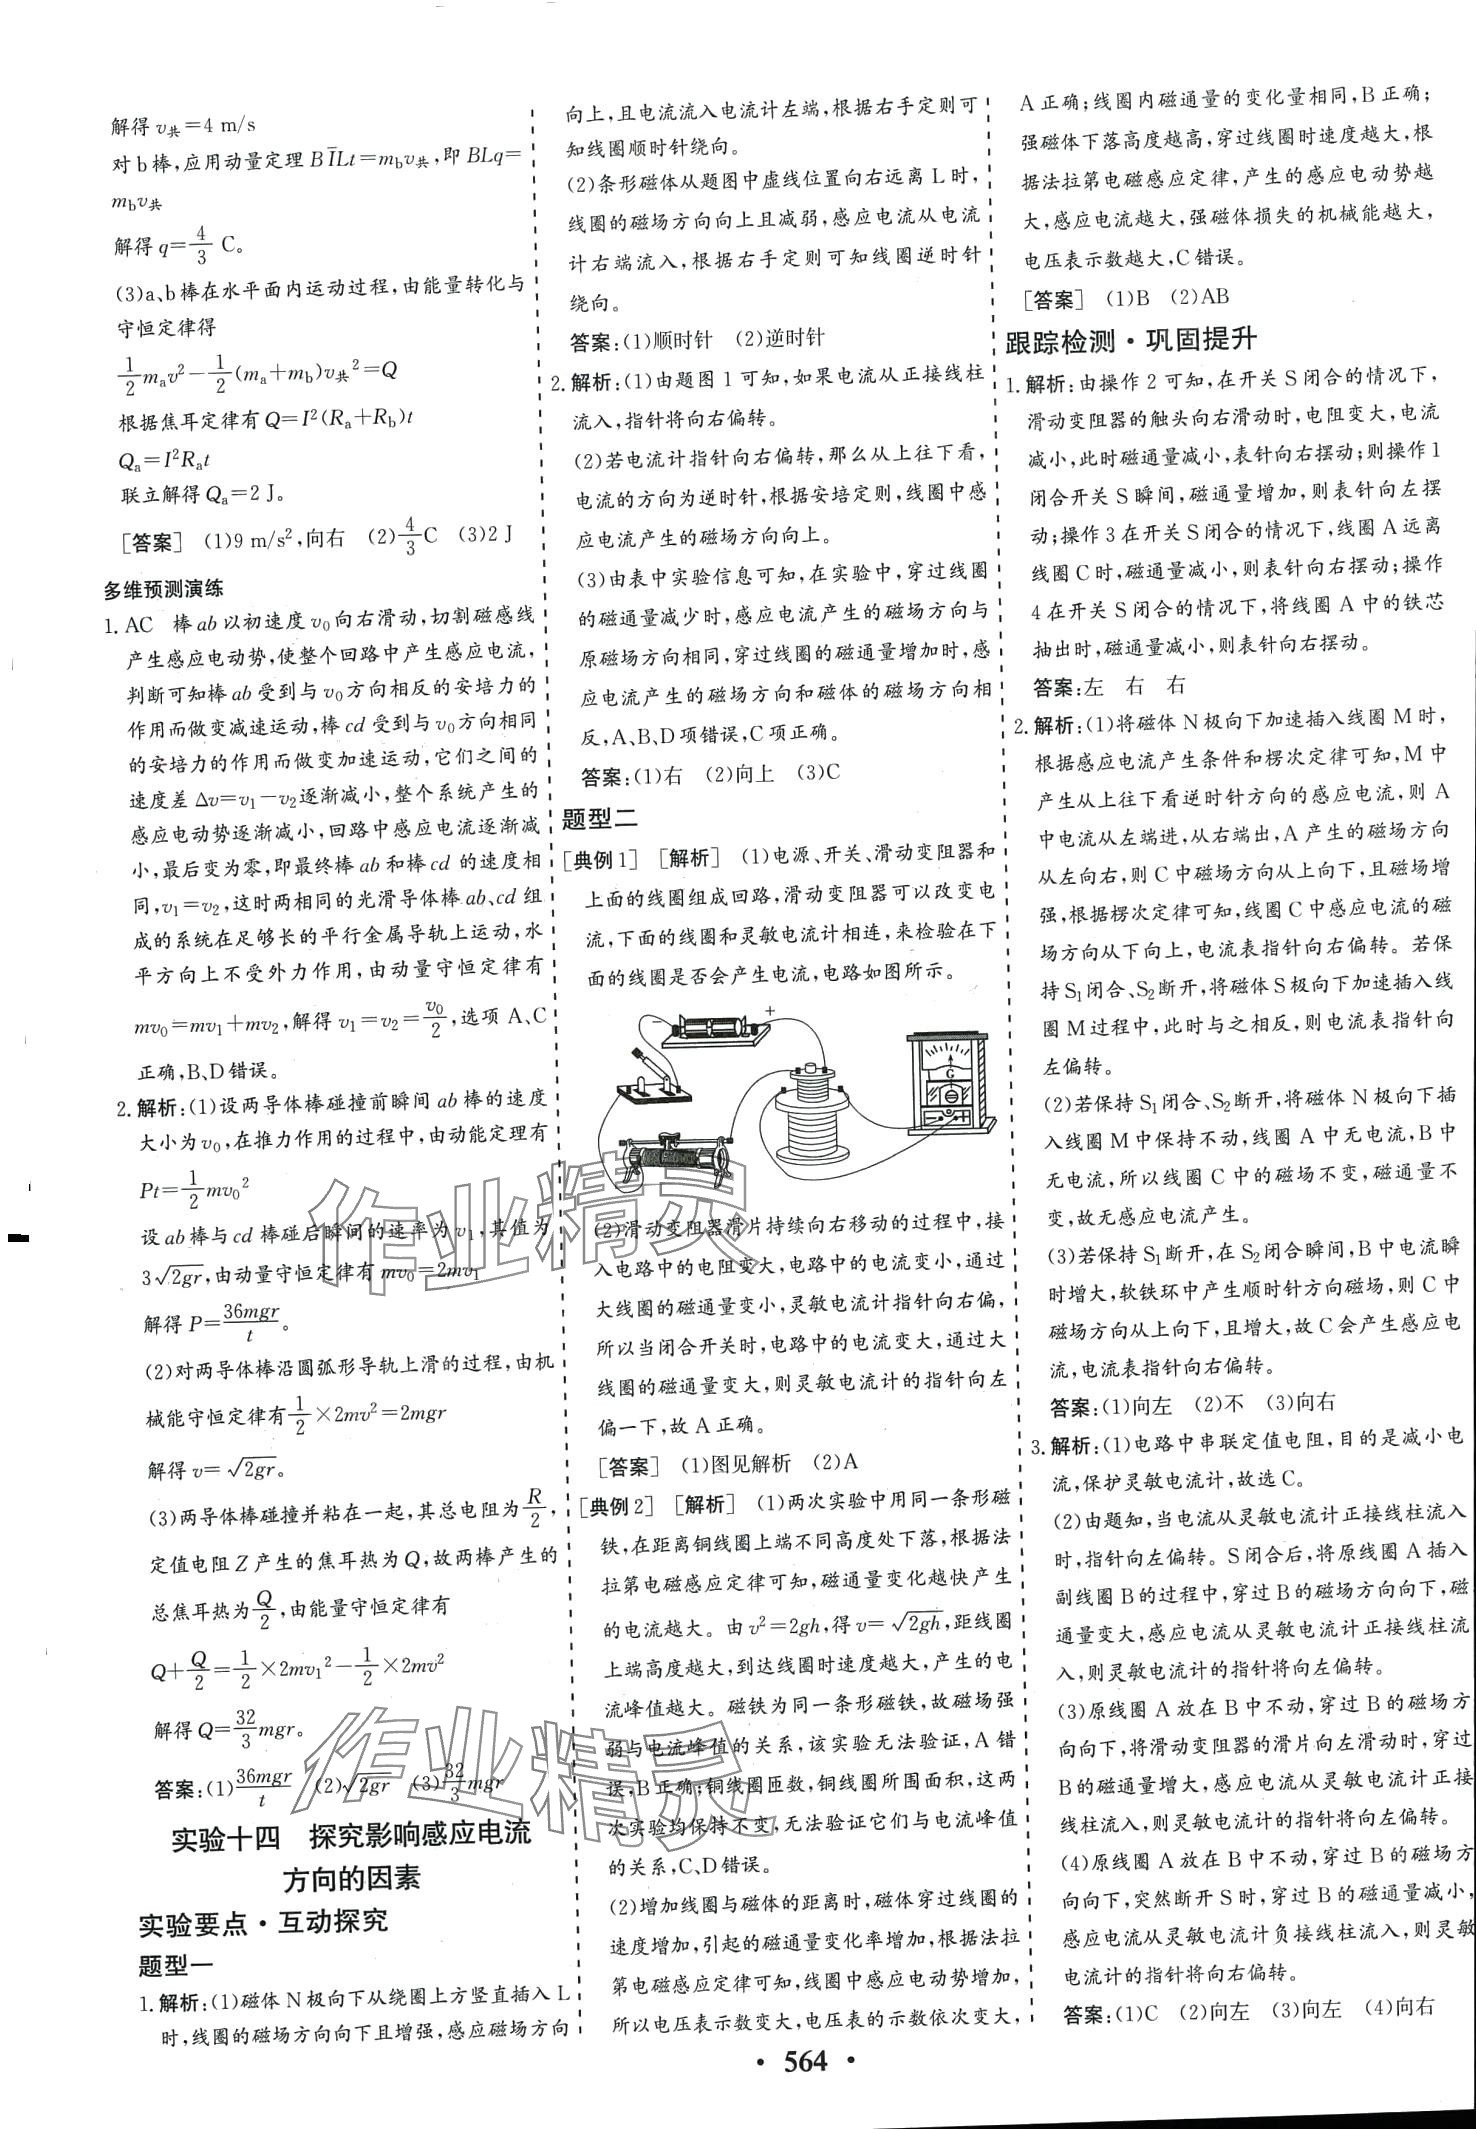 解得 v共=4 m/s
对 b 棒,应用动量定理 BI̅Lt=mbv共,即 BLq=
mbv共
解得 q=4/3 C。
(3)a、b棒在水平面内运动过程,由能量转化与
守恒定律得
1/2 mav²−1/2(ma+mb)v共²=Q
根据焦耳定律有 Q=I²(Ra+Rb)t
Qa=I²Rat
联立解得 Qa=2 J。
[答案] (1)9 m/s²,向右 (2)4/3 C (3)2 J
多维预测演练
1. AC 棒 ab 以初速度 v₀ 向右滑动,切割磁感线
产生感应电动势,使整个回路中产生感应电流,
判断可知棒 ab 受到与 v₀ 方向相反的安培力的
作用而做变减速运动,棒 cd 受到与 v₀ 方向相同
的安培力的作用而做变加速运动,它们之间的
速度差 Δv=v₁−v₂逐渐减小,整个系统产生的
感应电动势逐渐减小,回路中感应电流逐渐减
小,最后变为零,即最终棒 ab 和棒 cd 的速度相
同,v₁=v₂,这时两相同的光滑导体棒 ab、cd 组
成的系统在足够长的平行金属导轨上运动,水
平方向上不受外力作用,由动量守恒定律有
mv₀=mv₁+mv₂,解得 v₁=v₂=v₀/2,选项 A、C
正确,B、D错误。
2. 解析:(1)设两导体棒碰撞前瞬间 ab 棒的速度
大小为 v₀,在推力作用的过程中,由动能定理有
Pt=1/2 mv₀²
设 ab 棒与 cd 棒碰后瞬间的速率为 v₁,其值为
3√2gr,由动量守恒定律有 mv₀=2mv₁
解得 P=36mgr/t。
(2)对两导体棒沿圆弧形导轨上滑的过程,由机
械能守恒定律有1/2×2mv²=2mgr
解得 v=√2gr。
(3)两导体棒碰撞并粘在一起,其总电阻为R/2,
定值电阻 Z 产生的焦耳热为 Q,故两棒产生的
总焦耳热为Q/2,由能量守恒定律有
Q+Q/2=1/2×2mv₁²−1/2×2mv²
解得 Q=32/3 mgr。
答案:(1)36mgr/t (2)√2gr (3)32/3 mgr
实验十四 探究影响感应电流
方向的因素
实验要点·互动探究
题型一
1. 解析:(1)磁体 N 极向下从绕圈上方竖直插入 L
时,线圈的磁场方向向下且增强,感应磁场方向
向上,且电流流入电流计左端,根据右手定则可
知线圈顺时针绕向。
(2)条形磁体从题图中虚线位置向右远离 L 时,
线圈的磁场方向向上且减弱,感应电流从电流
计右端流入,根据右手定则可知线圈逆时针
绕向。
答案:(1)顺时针 (2)逆时针
2. 解析:(1)由题图 1 可知,如果电流从正接线柱
流入,指针将向右偏转。
(2)若电流计指针向右偏转,那么从上往下看,
电流的方向为逆时针,根据安培定则,线圈中感
应电流产生的磁场方向向上。
(3)由表中实验信息可知,在实验中,穿过线圈
的磁通量减少时,感应电流产生的磁场方向与
原磁场方向相同,穿过线圈的磁通量增加时,感
应电流产生的磁场方向和磁体的磁场方向相
反,A、B、D项错误,C项正确。
答案:(1)右 (2)向上 (3)C
题型二
[典例 1] [解析] (1)电源、开关、滑动变阻器和
上面的线圈组成回路,滑动变阻器可以改变电
流,下面的线圈和灵敏电流计相连,来检验在下
面的线圈是否会产生电流,电路如图所示。
− +
G
(2)滑动变阻器滑片持续向右移动的过程中,接
入电路中的电阻变大,电路中的电流变小,通过
大线圈的磁通量变小,灵敏电流计指针向右偏,
所以当闭合开关时,电路中的电流变大,通过大
线圈的磁通量变大,则灵敏电流计的指针向左
偏一下,故 A 正确。
[答案] (1)图见解析 (2)A
[典例 2] [解析] (1)两次实验中用同一条形磁
铁,在距离铜线圈上端不同高度处下落,根据法
拉第电磁感应定律可知,磁通量变化越快产生
的电流越大。由 v²=2gh,得 v=√2gh,距线圈
上端高度越大,到达线圈时速度越大,产生的电
流峰值越大。磁铁为同一条形磁铁,故磁场强
弱与电流峰值的关系,该实验无法验证,A 错
误,B正确;铜线圈匝数,铜线圈所围面积,这两
次实验均保持不变,无法验证它们与电流峰值
的关系,C、D错误。
(2)增加线圈与磁体的距离时,磁体穿过线圈的
速度增加,引起的磁通量变化率增加,根据法拉
第电磁感应定律可知,线圈中感应电动势增加,
所以电压表示数变大,电压表的示数依次变大,
A 正确;线圈内磁通量的变化量相同,B 正确;
强磁体下落高度越高,穿过线圈时速度越大,根
据法拉第电磁感应定律,产生的感应电动势越
大,感应电流越大,强磁体损失的机械能越大,
电压表示数越大,C错误。
[答案] (1)B (2)AB
跟踪检测·巩固提升
1. 解析:由操作 2 可知,在开关 S 闭合的情况下,
滑动变阻器的触头向右滑动时,电阻变大,电流
减小,此时磁通量减小,表针向右摆动;则操作 1
闭合开关 S 瞬间,磁通量增加,则表针向左摆
动;操作 3 在开关 S 闭合的情况下,线圈 A 远离
线圈 C 时,磁通量减小,则表针向右摆动;操作
4 在开关 S 闭合的情况下,将线圈 A 中的铁芯
抽出时,磁通量减小,则表针向右摆动。
答案:左 右 右
2. 解析:(1)将磁体 N 极向下加速插入线圈 M 时,
根据感应电流产生条件和楞次定律可知,M 中
产生从上往下看逆时针方向的感应电流,则 A
中电流从左端进,从右端出,A 产生的磁场方向
从左向右,则 C 中磁场方向从上向下,且磁场增
强,根据楞次定律可知,线圈 C 中感应电流的磁
场方向从下向上,电流表指针向右偏转。若保
持 S₁ 闭合、S₂断开,将磁体 S 极向下加速插入线
圈 M 过程中,此时与之相反,则电流表指针向
左偏转。
(2)若保持 S₁ 闭合、S₂断开,将磁体 N 极向下插
入线圈 M 中保持不动,线圈 A 中无电流,B 中
无电流,所以线圈 C 中的磁场不变,磁通量不
变,故无感应电流产生。
(3)若保持 S₁ 断开,在 S₂ 闭合瞬间,B 中电流瞬
时增大,软铁环中产生顺时针方向磁场,则 C 中
磁场方向从上向下,且增大,故 C 会产生感应电
流,电流表指针向右偏转。
答案:(1)向左 (2)不 (3)向右
3. 解析:(1)电路中串联定值电阻,目的是减小电
流,保护灵敏电流计,故选 C。
(2)由题知,当电流从灵敏电流计正接线柱流入
时,指针向左偏转。S闭合后,将原线圈 A 插入
副线圈 B 的过程中,穿过 B 的磁场方向向下,磁
通量变大,感应电流从灵敏电流计正接线柱流
入,则灵敏电流计的指针将向左偏转。
(3)原线圈 A 放在 B 中不动,穿过 B 的磁场方
向向下,将滑动变阻器的滑片向左滑动时,穿过
B 的磁通量增大,感应电流从灵敏电流计正接
线柱流入,则灵敏电流计的指针将向左偏转。
(4)原线圈 A 放在 B 中不动,穿过 B 的磁场方
向向下,突然断开 S 时,穿过 B 的磁通量减小,
感应电流从灵敏电流计负接线柱流入,则灵敏
电流计的指针将向右偏转。
答案:(1)C (2)向左 (3)向左 (4)向右
作业精灵
作业精灵
• 564 •